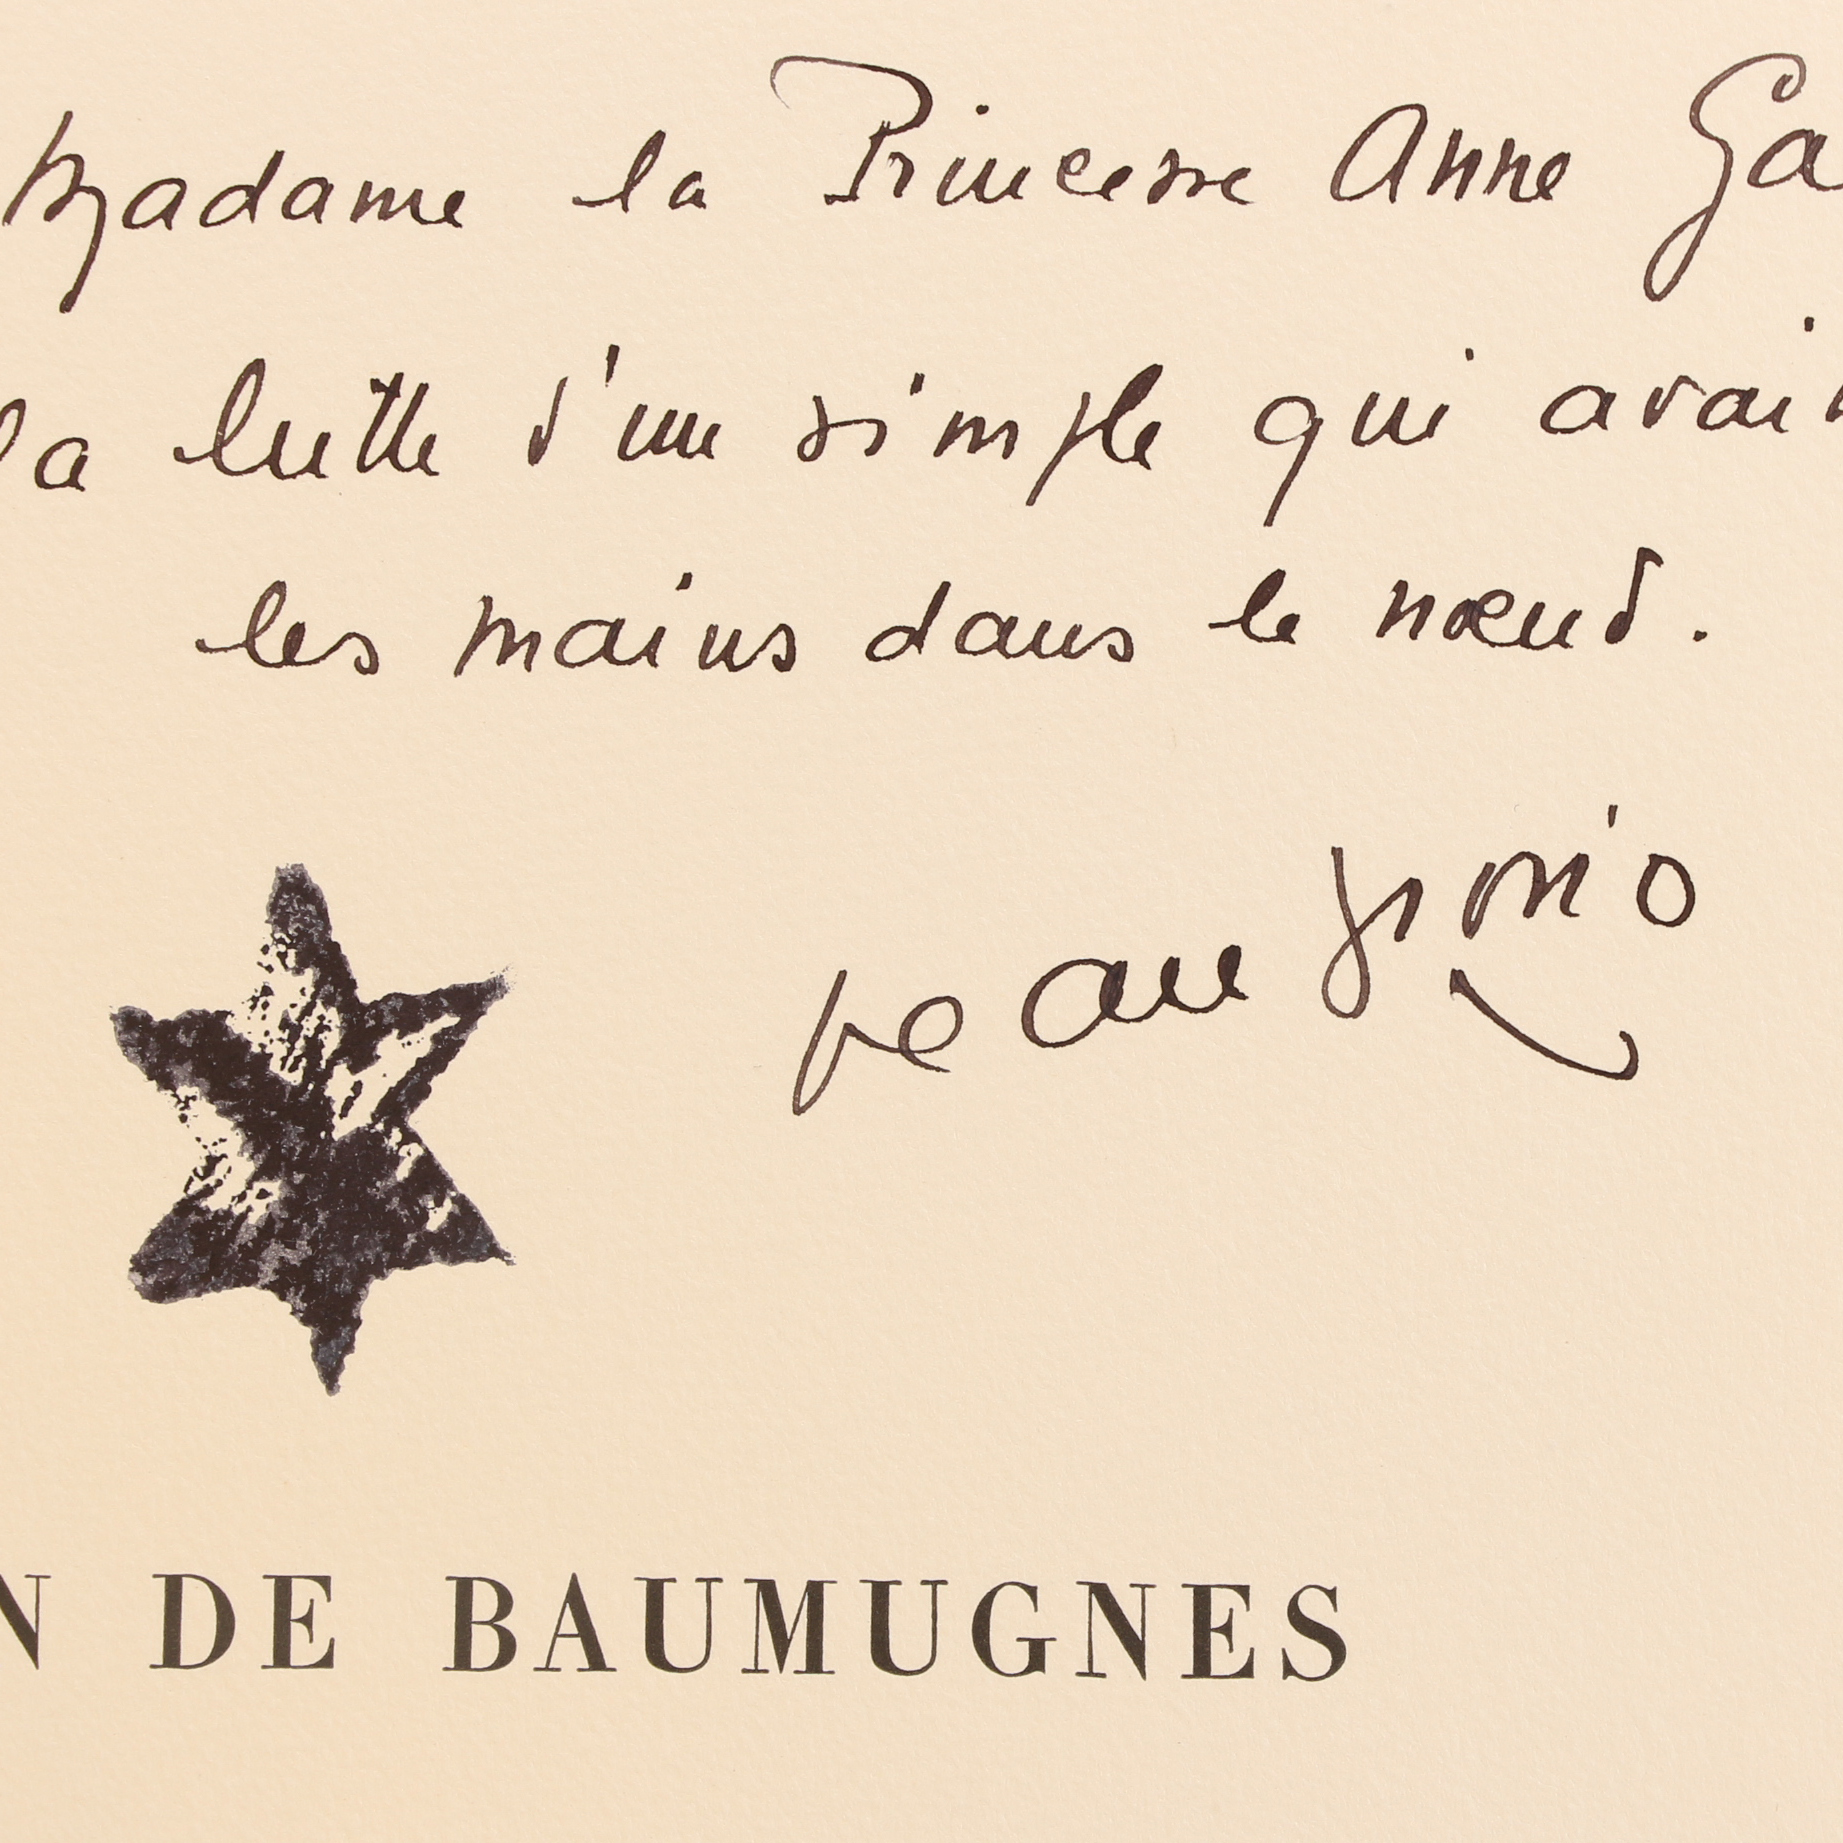 Madame la Princesse Anne Ga
la lutte d'un simple qui avait
les mains dans le nœud.
Jean Giono
N DE BAUMUGNES